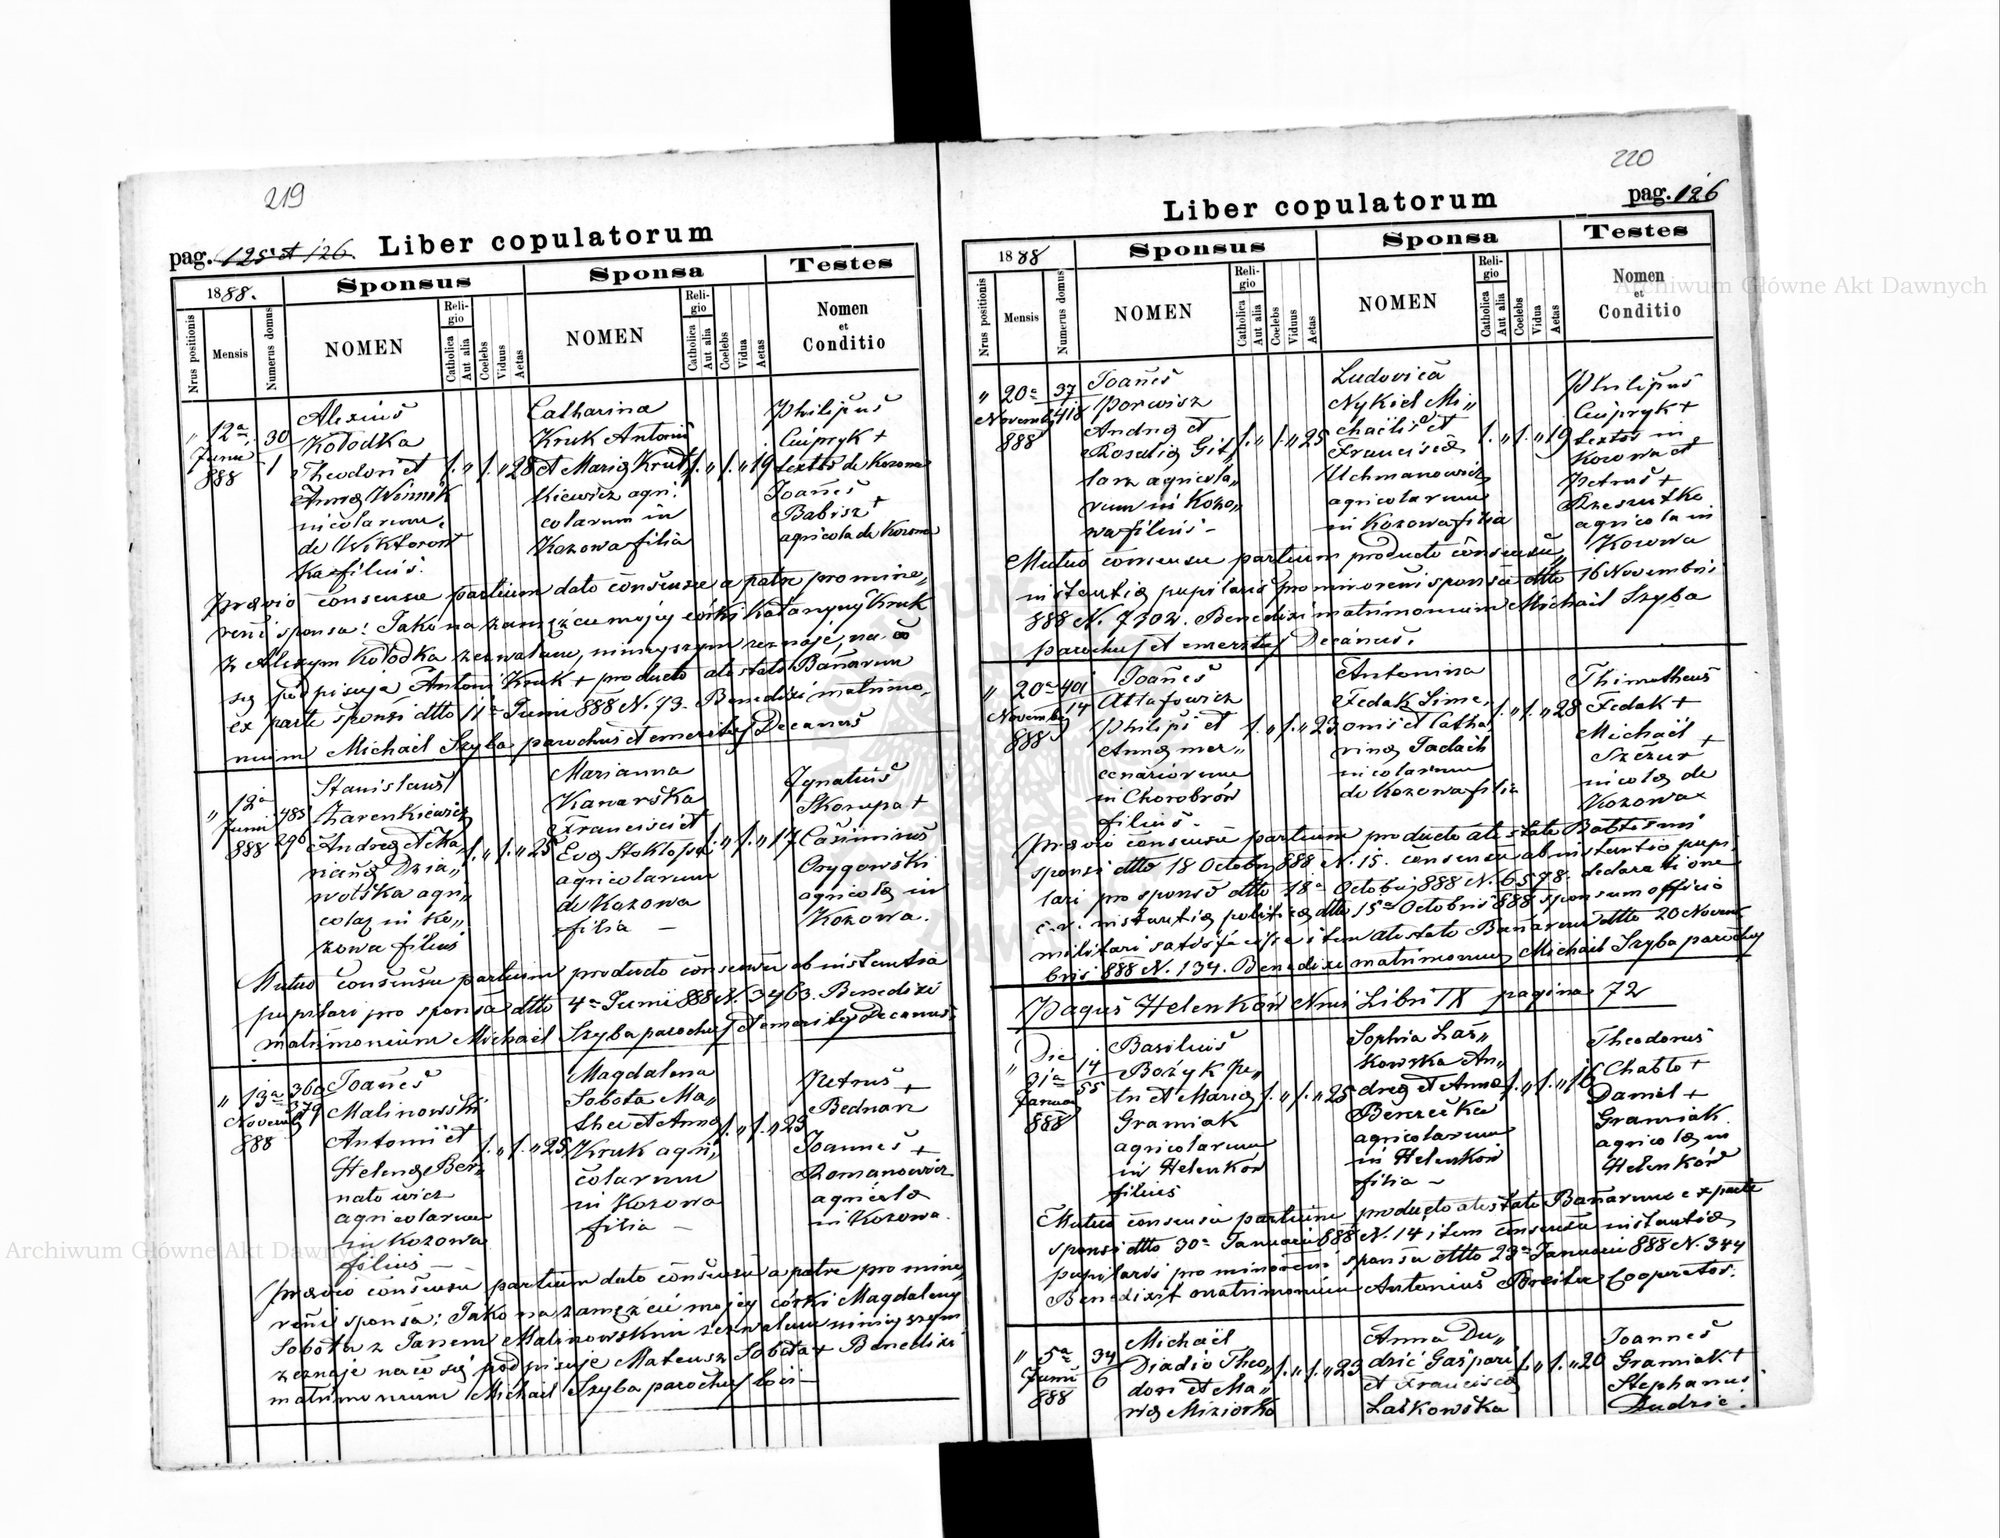 219
pag. 125 et 126. Liber copulatorum
1888.
Sponsus
Sponsa
Testes
Nrus positionis
Mensis
Numerus domus
NOMEN
Religio
Catholica
Aut alia
Coelebs
Viduus
Aetas
NOMEN
Religio
Catholica
Aut alia
Coelebs
Vidua
Aetas
Nomen
et
Conditio
" 12a
Junii
888
30
1
Alexius
Kołodka
Theodori et
Anna Winnik
nicolarum
de Wiktorow
ka filius.
1. " 1. " 28
Catharina
Kruk Antonii
et Maria Krut
kiewicz agri
colarum in
Kozowa filia
1. " 1. " 19
Philipus
Cuipryk +
textor de Kozowa
Joanes
Babisz +
agricola de Kozowa
Praevio consensu partium dato consensu a patre pro mino„
reni sponsa: Jako na zamęźcie mojej córki Katarzyny Kruk
z Alexym Kołodka zezwalam, niniejszym zeznaję, na co
się podpisuję Antoni Kruk + producto atestato Banarum
ex parte sponsi dtto 11a Junii 888 N. 73. Benedixi matrimo„
nium Michael Szyba parochus et emeritus Decanus
" 12a
Junii
888
485
296
Stanislaus
Zarenkiewicz
Andrea et Ma
rianna Dzia„
wolska agri„
colaz in Ko„
zowa filius
1. " 1. " 25
Marianna
Kanarska
Francisci et
Eva Stoklosa
agricolarum
de Kozowa
filia —
1. " 1. " 17
Ignatius
Skorupa +
Casimirus
Orygowski
agricola in
Kozowa.
Mutuo consensu partium producto consensu ab instantia
pupilari pro sponsa dtto 4a Junii 888 N. 3463. Benedixi
matrimonium Michael Szyba parochus et emeritus Decanus.
" 13a
Novemb
888
360
379
Joanes
Malinowski
Antonii et
Helena Ber„
natowicz
agricolarum
in Kozowa
filius —
1. " 1. " 25
Magdalena
Sobota Ma„
thei et Anna
Kruk agri„
colarum
in Kozowa
filia —
1. " 1. " 23
Petrus +
Bednarz
Joannes +
Romanowicz
agricola
in Kozowa.
Praevio consensu partium dato consensu a patre pro mino„
reni sponsa; Jako na zamęźcie mojej córki Magdaleny
Sobota z Janem Malinowskim zezwalam niniejszem
zeznaje na co się podpisuje Mateusz Sobota + Benedixi
matrimonium Michael Szyba parochus loci —
220
Liber copulatorum pag. 126
1888
Sponsus
Sponsa
Testes
Nrus positionis
Mensis
Numerus domus
NOMEN
Religio
Catholica
Aut alia
Coelebs
Viduus
Aetas
NOMEN
Religio
Catholica
Aut alia
Coelebs
Vidua
Aetas
Nomen
et
Conditio
" 20a
Novemb
888
37
418
Joanes
Porwisz
Andrea et
Rosalia Git„
larz agricola„
rum in Kozo„
wa filius —
1. " 1. " 25
Ludovica
Nykiel Mi„
chaëlis et
Francisca
Uchmanowicz
agricolarum
in Kozowa filia
1. " 1. " 19
Philipus
Cuipryk +
textor in
Kozowa et
Petrus +
Rzeszutko
agricola in
Kozowa
Mutuo consensu partium producto consensu
instantia pupilaris pro minoreni sponsa dtto 16 Novembris
888 N. 7302. Benedixi matrimonium Michael Szyba
parochus et emeritus Decanus.
" 20a
Novemb
888
401
14
Joanes
Attafowicz
Philipi et
Anna mer„
cenariorum
in Chorobrów
filius.
1. " 1. " 23
Antonina
Fedak Sime„
onis et Catha
rina Tadach
nicolarum
de Kozowa filia
1. " 1. " 28
Thimotheus
Fedak +
Michaël +
Szczur
nicola de
Kozowa
Praevio consensu partium producto atestato Batismi
sponsi dtto 18 Octobris 888 N. 15. consensu ab instantia pupi„
lari pro sponso dtto 18a Octobris 888 N. 6578. declaratione
c. r. instantia politica dtto 15a Octobris 888 sponsum officio
militari satisfecisse item atestato Banarum dtto 20 Novem„
bris 888 N. 134. Benedixi matrimonium Michael Szyba parochus
Pagus Helenków Nrus Libri IX pagina 72
" Die
31a
Januar
888
14
55
Basilius
Bożyk Pe„
tri et Maria
Gramiak
agricolarum
in Helenków
filius
1. " 1. " 25
Sophia Las„
kowska An„
drea et Anna
Berezecka
agricolarum
in Helenków
filia —
1. " 1. " 16
Theodorus
Chabło +
Daniel +
Gramiak
agricola in
Helenków
Mutuo consensu partium producto atestato Banarum ex parte
sponsi dtto 30a Januarii 888 N. 14, item consensu instantia
pupilaris pro minoreni sponsa dtto 23a Januarii 888 N. 344
Benedixit matrimonium Antonius Breiter Cooperator.
" 5a
Junii
888
34
6
Michaël
Diadio Theo„
dori et Ma„
ria Miziorko
1. " 1. " 23
Anna Du„
dzić Gaspari
et Francisca
Laskowska
1. " 1. " 20
Joannes
Gramiak +
Stephanus
Dudzic.
Archiwum Główne Akt Dawnych
Archiwum Główne Akt Dawnych